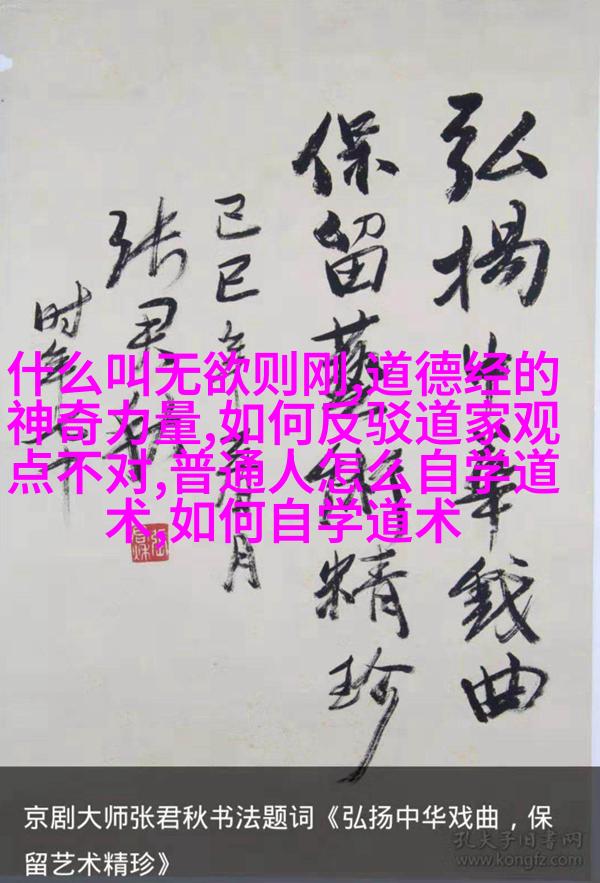 弘揚中華戲曲
保留藝術精珍
己巳年月
张君秋
时年
什么叫无欲则刚,道德经的
神奇力量,如何反驳道家观
点不对,普通人怎么自学道
术,如何自学道术
京剧大师张君秋书法题词《弘扬中华戏曲，保
留艺术精珍》
孔夫子旧书网
www.kongfz.com